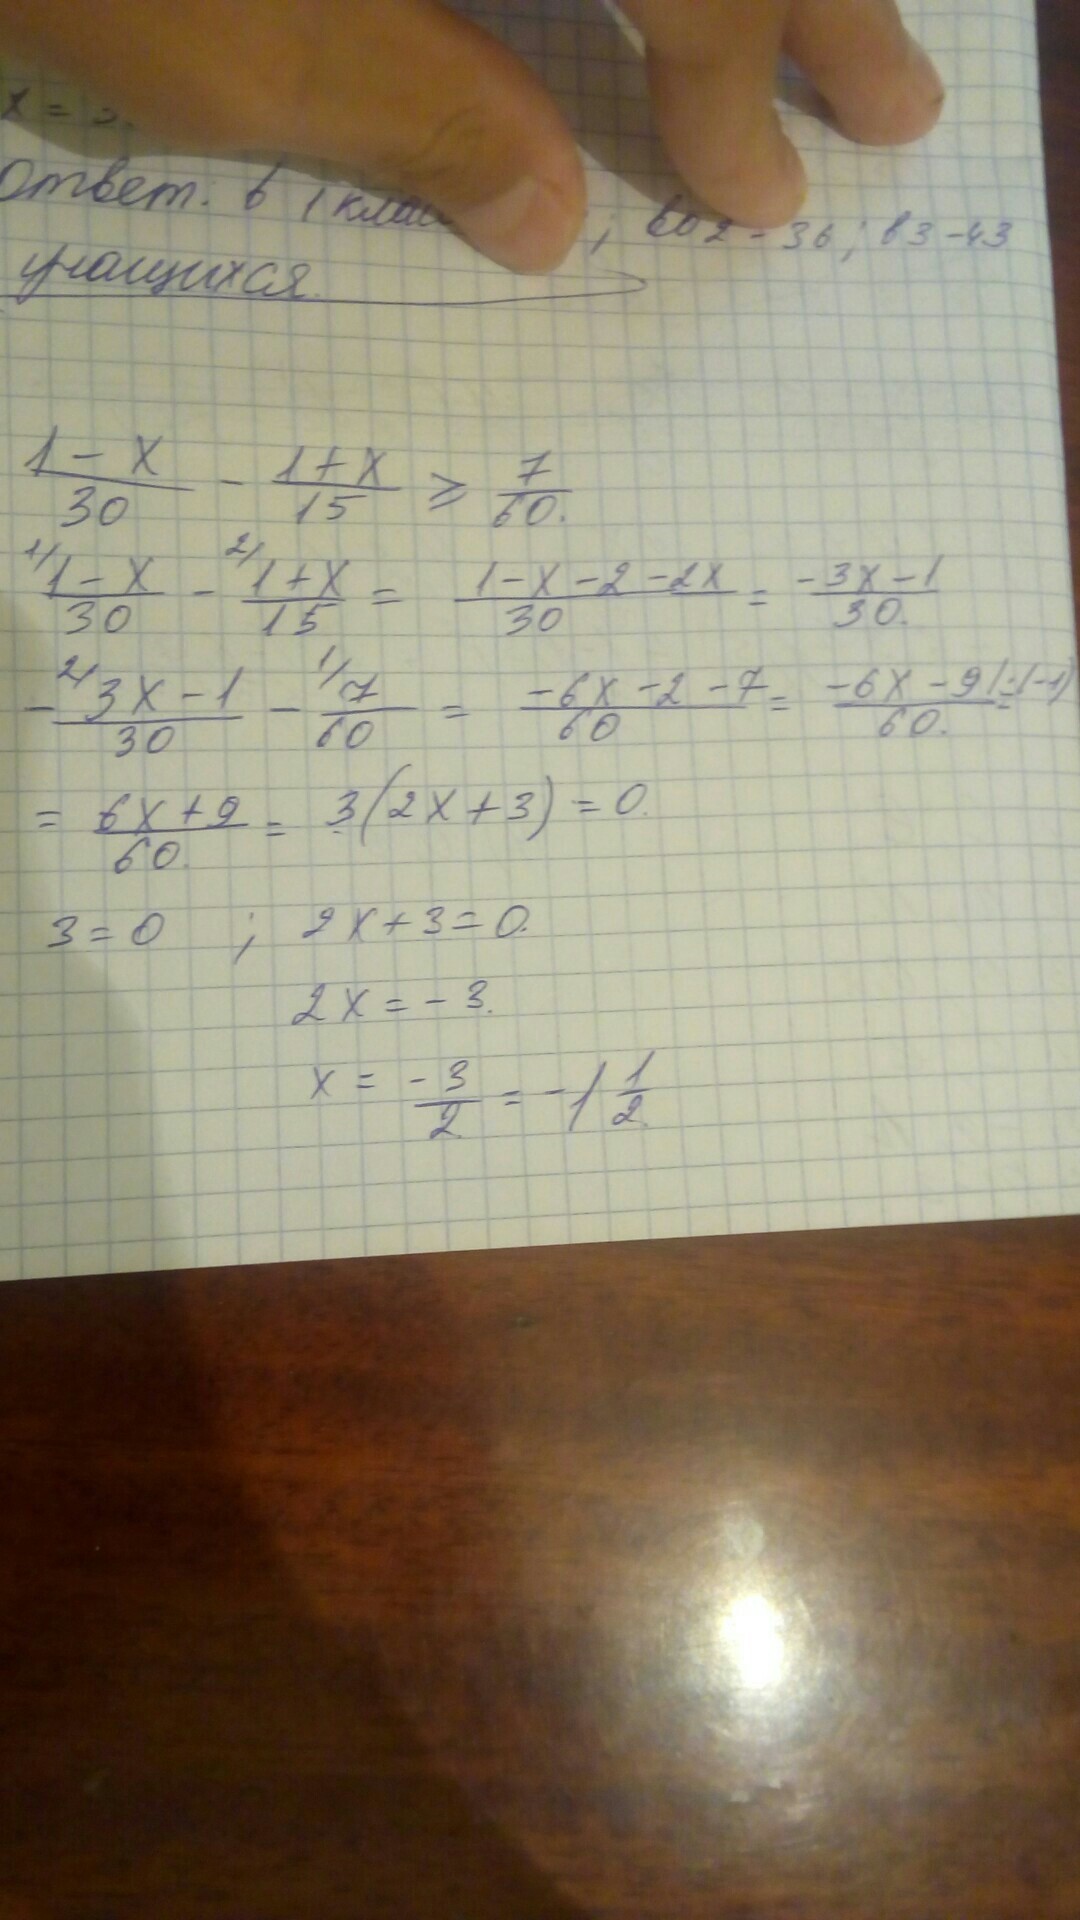 x = 3
Ответ. в 1 клас ; во 2 - 36; в 3 - 43
учащихся.
1 - x/30 - 1+x/15 ⩾ 7/60.
1/ 1-x/30 - 2/ 1+x/15 = 1-x-2-2x/30 = -3x-1/30.
- 2/ 3x-1/30 - 1/ 7/60 = -6x-2-7/60 = -6x-9/60. |:(-1) =
= 6x+9/60. = 3(2x+3) = 0.
3=0 ; 2x+3=0.
2x = -3.
x = -3/2 = -1 1/2.